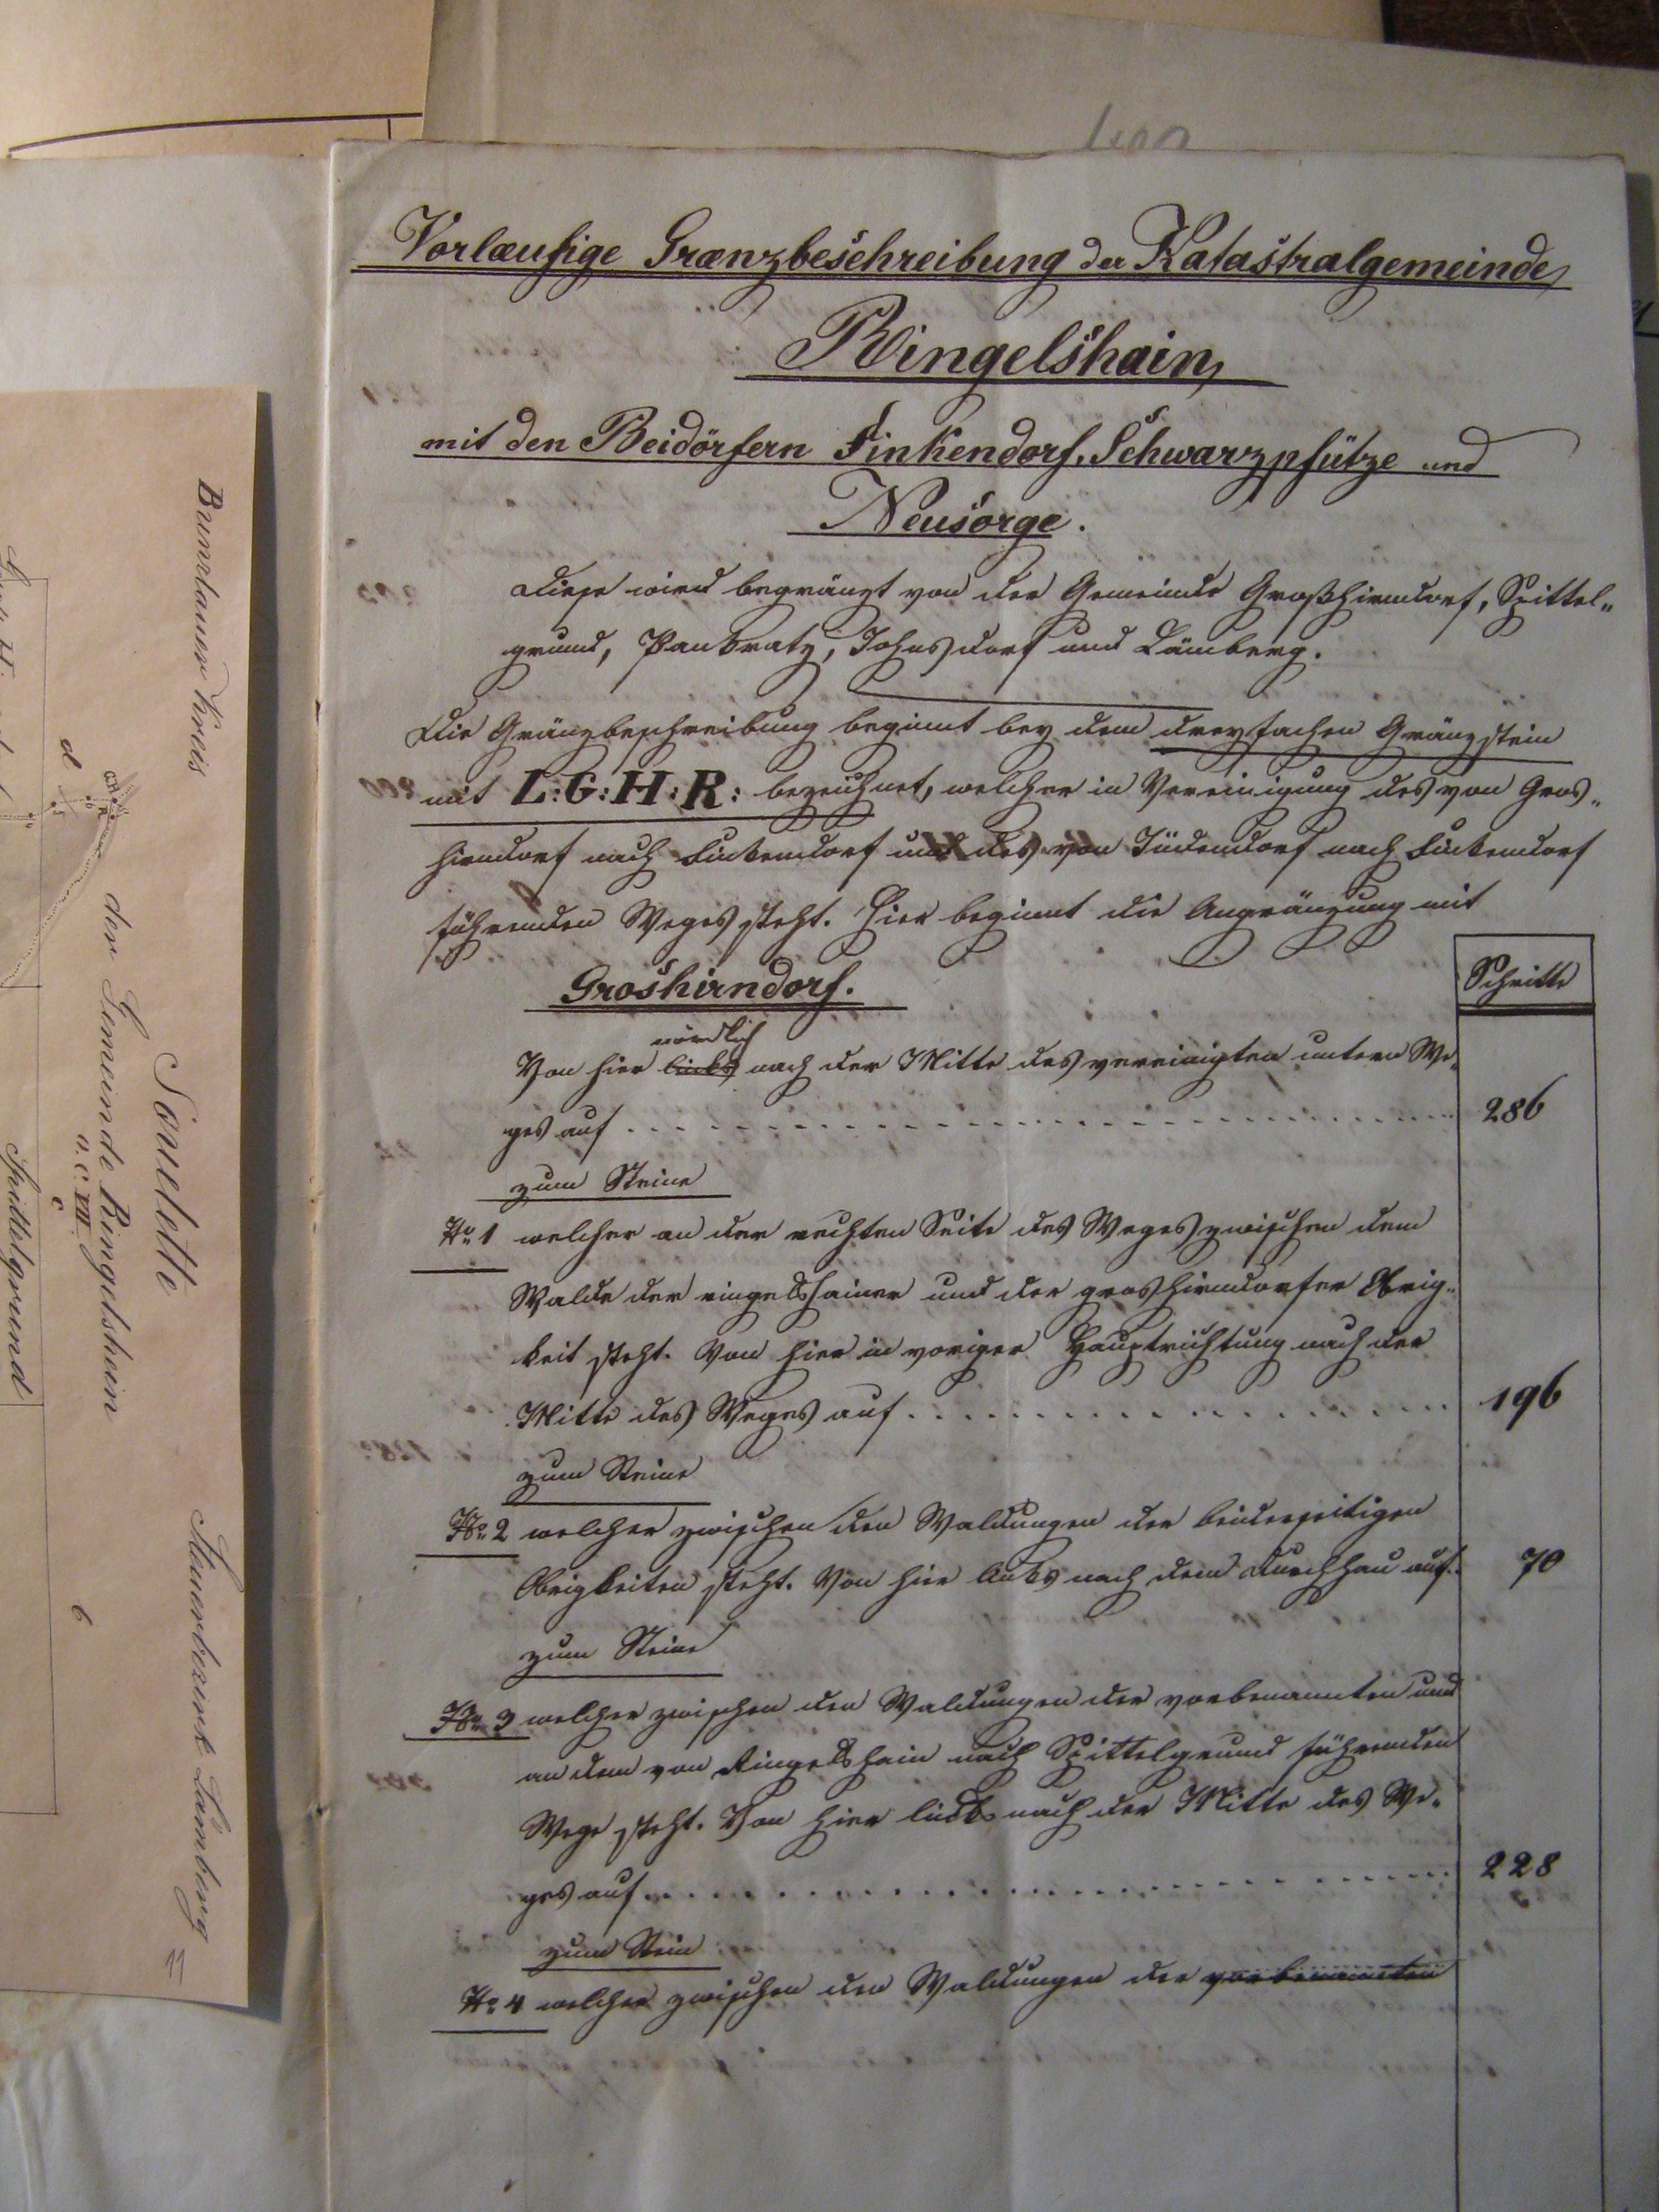 Vorlæufige Grænzbeschreibung der Katastralgemeinde
Ringelshain,
mit den Beidörfern Finkendorf, Schwarzpfütze und
Neusorge.
Diese wird begränzt von der Gemeinde Großhirndorf, Spittel„
grund, Pankratz, Johnsdorf und Lämberg.
Die Gränzbeschreibung beginnt bey dem dreyfachen Gränzstein
mit L:G:H:R: bezeichnet, welcher in Vereinigung des von Gros„
hirndorf nach Finkendorf und des von Jüdendorf nach Finkendorf
führenden Weges steht. Hier beginnt die Angränzung mit
Groshirndorf.
Schritte
nördlich
Von hier links nach der Mitte des vereinigten untern We„
ges auf 286
zum Steine
No 1 welcher an der rechten Seite des Weges zwischen dem
Walde der ringelshainer und der groshirndorfer Obrig„
keit steht. Von hier in voriger Hauptrichtung nach der
Mitte des Weges auf 196
zum Steine
No 2 welcher zwischen den Waldungen der beiderseitigen
Obrigkeiten steht. Von hier links nach dem Durchhau auf 70
zum Steine
No 3 welcher zwischen den Waldungen der vorbenannten und
an dem von Ringelshain nach Spittelgrund führenden
Wege steht. Von hier links nach der Mitte des We„
ges auf 228
zum Stein
No 4 welcher zwischen den Waldungen der vorbenannten
Bunzlauer Kreis
Steuerbezirk Lämberg
11
der Gemeinde Ringelshain
v. c. VII.
Spittelgrund
d
c
6